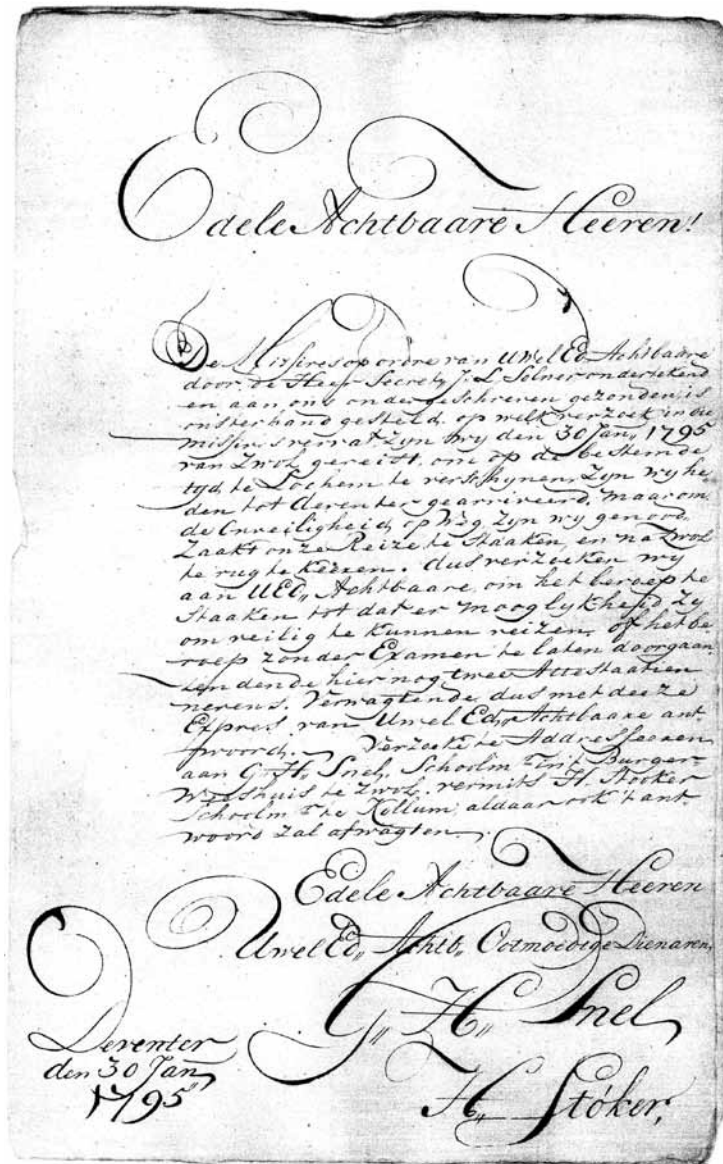 Edele Achtbaare Heeren!
De Missives op ordre van UWel Ed. Achtbaare
door de Heer Secret. J. L. Solner ondertekend
en aan ons ondergeschreven gezonden, is
ons ter hand gesteld. op welk verzoek in die
missives vervat. Zyn wy den 30 Jan,, 1795
van Zwol gereist, om op de bestemde
tyd, te Lochem te verschynen, Zyn wy he
den tot Deventer gearriveerd, maar om
de Onveiligheid, op Weg, Zyn wy genood,
Zaakt onze Reize te Staaken, en na Zwol
te rug te keeren. dus verzoeken wy
aan UEd,, Achtbaare, om het beroep te
Staaken tot dat er mooglykheid Zy
om veilig te kunnen reizen, of het be
roep zonder Examen te laten doorgaan
dende hier nog twee Attestaatien
nevens. Verwagtende dus met deeze
Expres van UWel Ed,, Achtbaare ant
woord. Verzoeke te Addresseeren
aan G,, H,, Snel, Schoolmr in't Burger
Weeshuis te Zwol, vermits H. Stooker
Schoolmr te Kollum, aldaar ook 't ant
woord zal afwagten.
Edele Achtbaare Heeren
UWel Ed,, Achtb,, Ootmoedige Dienaren,
G,, H,, Snel
Deventer
den 30 Jan
1795
H,, Stóker,